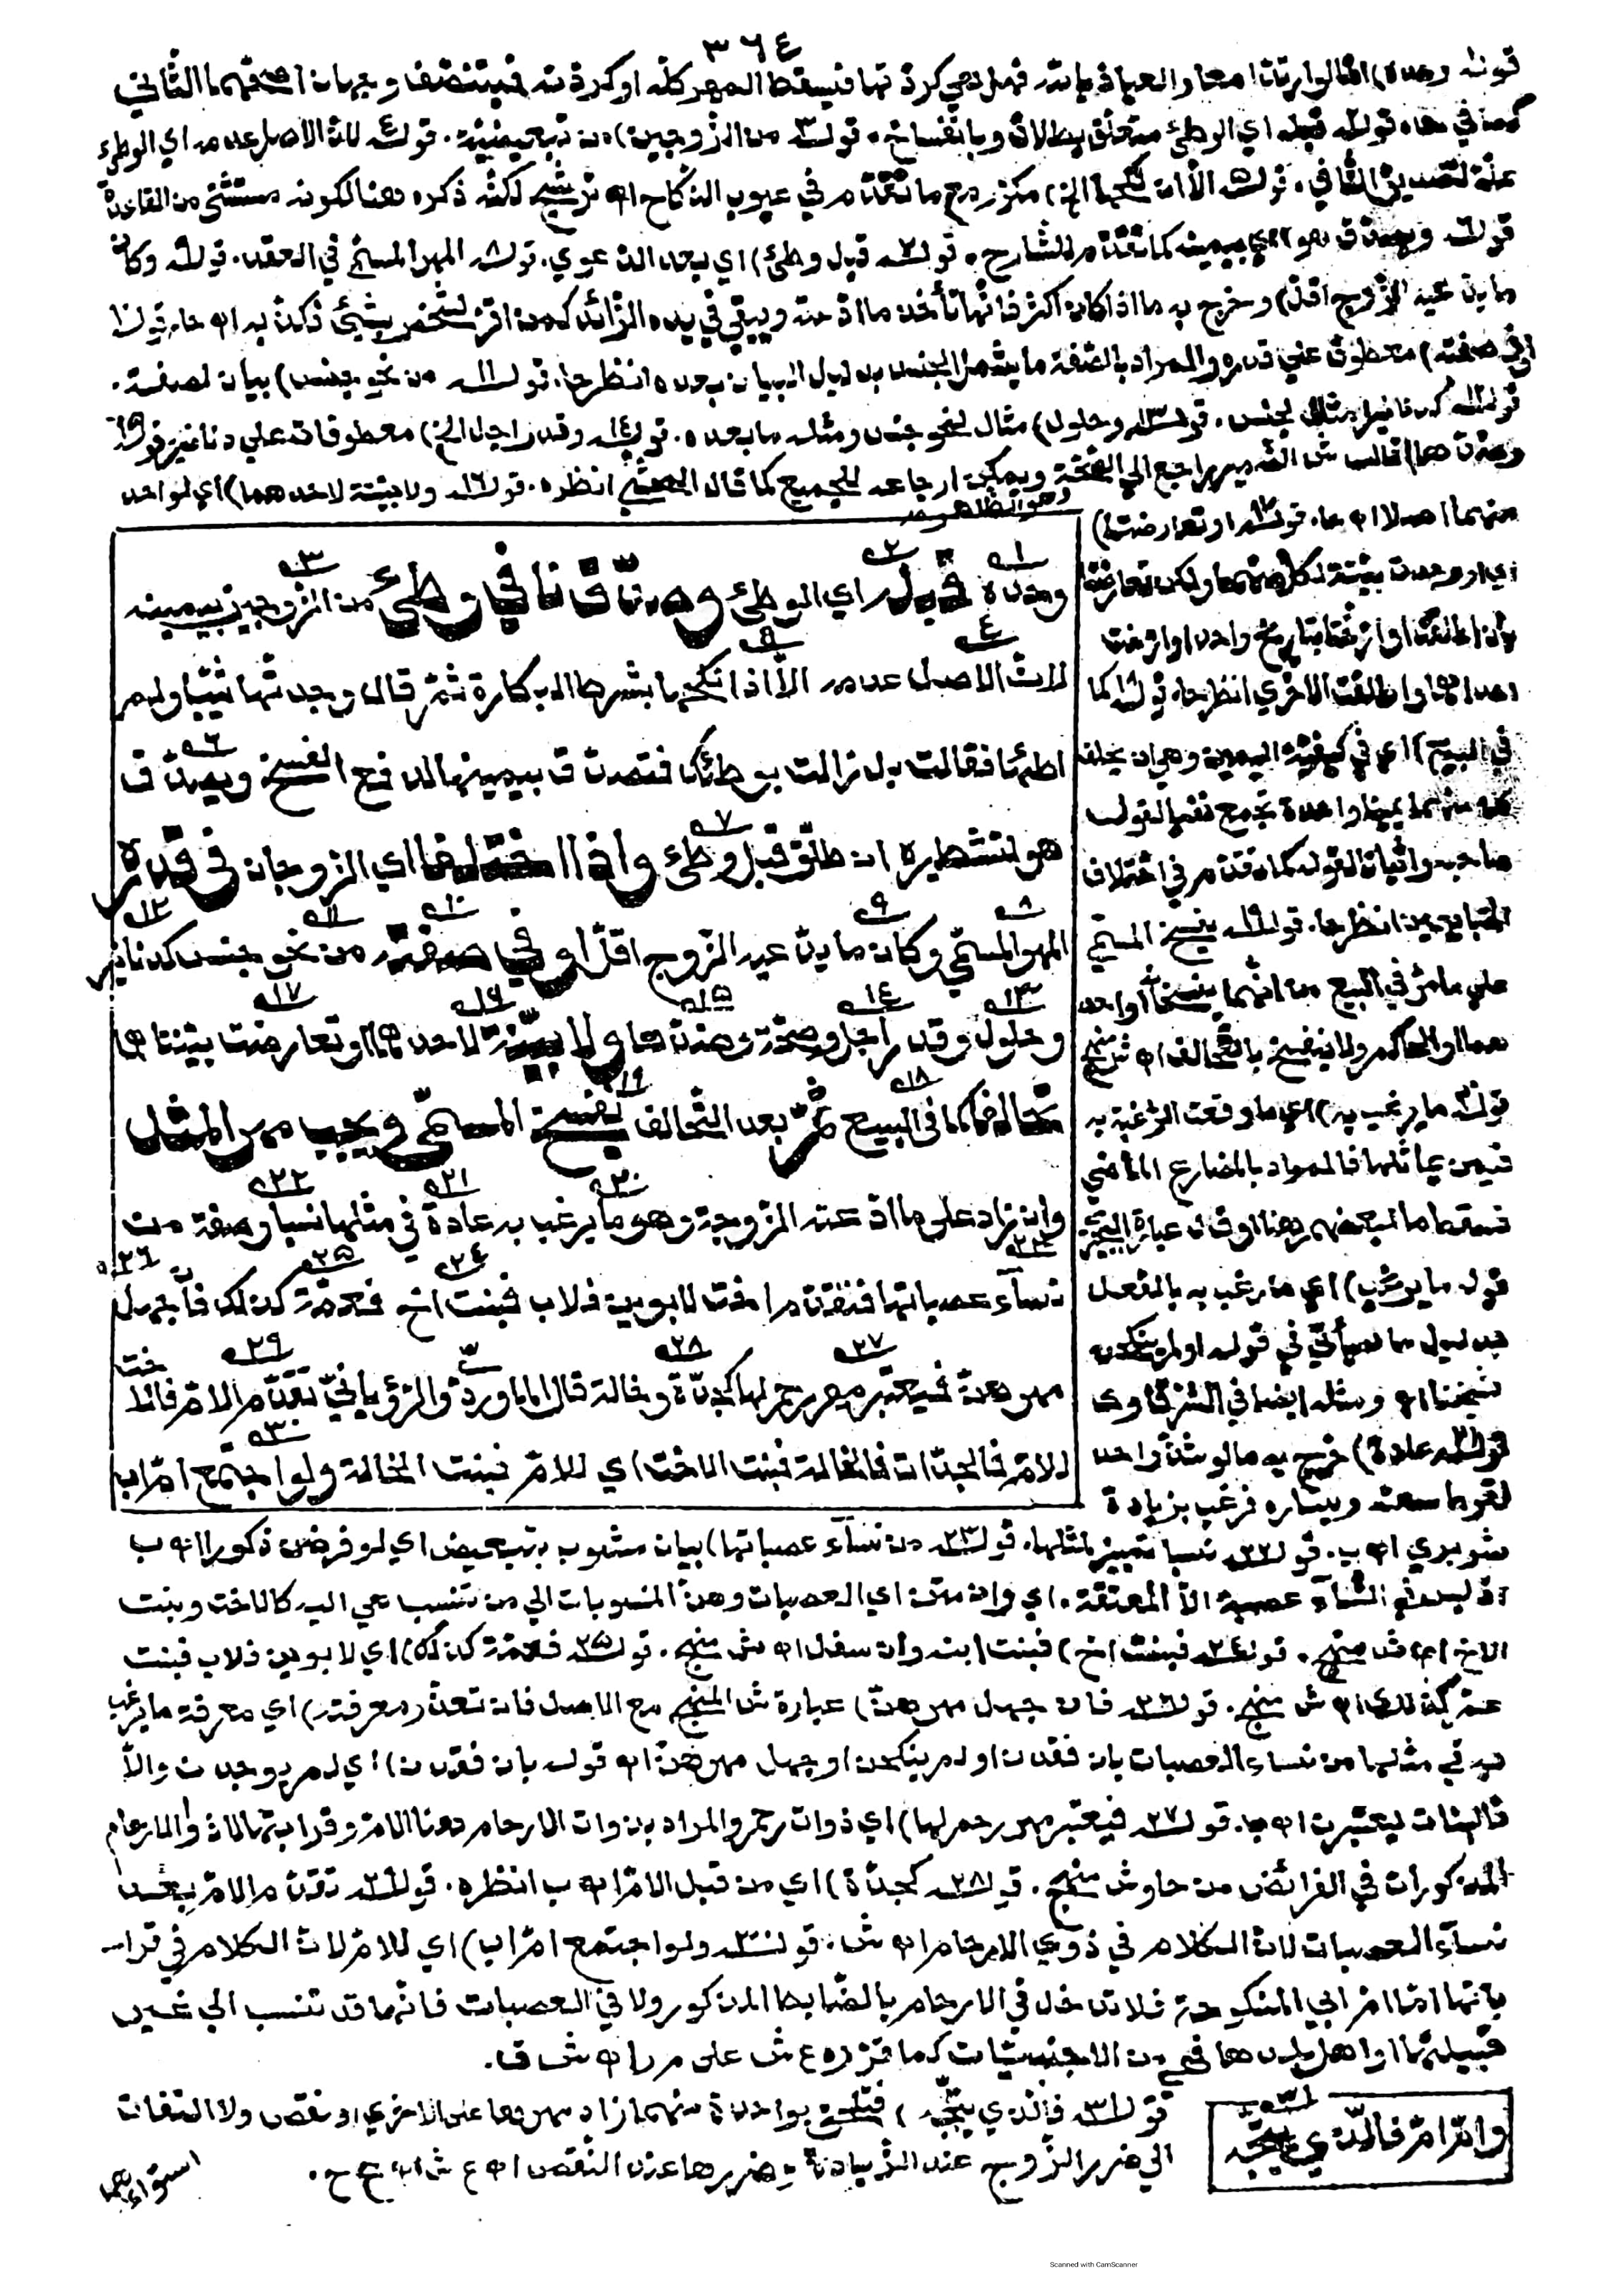 ٣٦٤
قوله وحده) اما لو ارتدا معا والعياذ بالله فهل هي كردتها فيسقط المهر كله او كردته فيتنصف وجهان اصحهما الثاني
كما في قوله قبله اي الوطئ متعلق بطلاق وبانفساخ. قوله من الزوجين) من تبعيضية. قوله لان الاصل عدمه اي الوطئ
علة لتصديق النافي. قوله الا ان نكحها الخ) مكرر مع ما تقدم في عيوب النكاح اه لكنه ذكره هنا لكونه مستثنى من القاعدة
قوله ويصدق هو) اي بيمينه كما تقدم للشارح. قوله قبل وطئ) اي بعد الدعوي. قوله المهر المسمى في العقد. قوله وكان
ما يدعيه الزوج اقل) وخرج به ما اذا كان اكثر فانها تأخذ ما ادعته ويبقي في يده الزائد كمن اقر لشخص بشيئ فكذبه اه قوله
او في صفته) معطوف علي قدره والمراد بالصفة ما يشمل الجنس بدليل البيان بعده انظرها. قوله من نحو جنس) بيان لصفة.
قوله كدنانير) مثال لجنس. قوله وحلول) مثال لنحو جنس ومثله ما بعده. قوله وقدر اجل الخ) معطوفات علي دنانير قوله
وضدها) قال ش الضمير راجع الي الصحة ويمكن ارجاعه للجميع كما قال المحشي انظره. قوله ولا بينة لاحدهما) اي لواحد
وهو الظاهر
منهما اصلا اه. قوله او تعارضتا)
اي او وجدت بينة لكل منهما ولكن تعارضتا
بأن اطلقتا او ارختا بتاريخ واحد او ارخت
احداهما واطلقت الاخري انظرها. قوله كما
في البيع) اي في كيفية اليمين وهي ان يحلف
كل منهما يمينا واحدة تجمع نفيا لقول
صاحبه واثباتا لقوله كما تقدم في اختلاف
المتبايعين انظرها. قوله يفسخ المسمى
علي ما مر في البيع من انهما يفسخانه او احد
هما او الحاكم ولا ينفسخ بالتحالف اه ش منهج
قوله ما يرغب به) اي ما وقعت الرغبة به
فيمن يماثلها فالمراد بالمضارع الماضي
قوله ما يرغب) اي ما رغب به بالفعل
بدليل ما سيأتي في قوله او لم ينكحن
شيخنا اه ومثله ايضا في الشرقاوي
قوله عادة) خرج به ما لو شذ واحد
لفرط سعته ويساره فرغب بزيادة
وحده قبله اي الوطئ وصدق نافي وطئ من الزوجين بيمينه
لان الاصل عدمه الا اذا نكحها بشرط البكارة ثم قال وجدتها ثيبا ولم
اطئها فقالت بل زالت بوطئك فتصدق بيمينها لدفع الفسخ ويصدق
هو لتشطيره ان طلق قبل وطئ واذا اختلفا اي الزوجان في قدره
المهر المسمى وكان ما يدعيه الزوج اقل او في صفته من نحو جنس كدنانير
وحلول وقدر اجل وصحة وضدها ولا بينة لاحدهما او تعارضت بينتاهما
تحالفا كما في البيع ثم بعد التحالف يفسخ المسمى ويجب مهر المثل
وان زاد علي ما ادعته الزوجة وهو ما يرغب به عادة في مثلها نسبا وصفة من
نسآء عصباتها فتقدم اخت لابوين فلاب فبنت اخ فعمة كذلك فان جهل
مهرهن فيعتبر مهر رحم لها كجدة وخالة قال الماوردي والرؤياني تقدم الام فالاخت
للام فالجدات فالخالة فبنت الاخت اي للام فبنت الخالة ولو اجتمع ام اب
شوبري اه ب. قوله نسبا تمييز لمثلها. قوله من نسآء عصباتها) بيان مشوب بتبعيض اي لو فرضن ذكورا اه ب
اذ ليس في النسآء عصبة الا المعتقة. اي وان متن اي العصبات وهن المنسوبات الي من تنسب هي اليه كالاخت وبنت
الاخ اه ش منهج. قوله فبنت اخ) فبنت ابنه وان سفل اه ش منهج. قوله فعمة كذلك) اي لابوين فلاب فبنت
عم كذلك اه ش منهج. قوله فان جهل مهرهن) عبارة ش المنهج مع الاصل فان تعذر (معرفته) اي معرفة ما يرغب
به في مثلها من نساء العصبات بان فقدن او لم ينكحن او جهل مهرهن اه قوله بان فقدن) اي لم يوجدن والا
فالميتات يعتبرن اه. قوله فيعتبر مهر رحم لها) اي ذوات رحم والمراد بذوات الارحام هنا الام وقراباتها لا ذوا الارحام
المذكورات في الفرائض من حاو ش منهج. قوله كجدة) اي من قبل الام اه ب انظره. قوله تقدم الام بعد
نسآء العصبات لان الكلام في ذوي الارحام اه ش. قوله ولو اجتمع ام اب) اي للام لان الكلام في قرا
باتها اما ام ابي المنكوحة فلا تدخل في الارحام بالضابط المذكور ولا في العصبات فانها قد تنسب الي غير
قبيلتها او اهل بلدها فهي من الاجنبيات كما قرره ع ش على م ر اه ش ق.
وام ام فالذي يتجه
قوله فالذي يتجه) فتلحق بواحدة منهما زاد مهرها على الاخري او نقص ولا التفات
الي ضرر الزوج عند الزيادة وضررها عند النقص اه ع ش اه ع ح.
استواءهما
Scanned with CamScanner